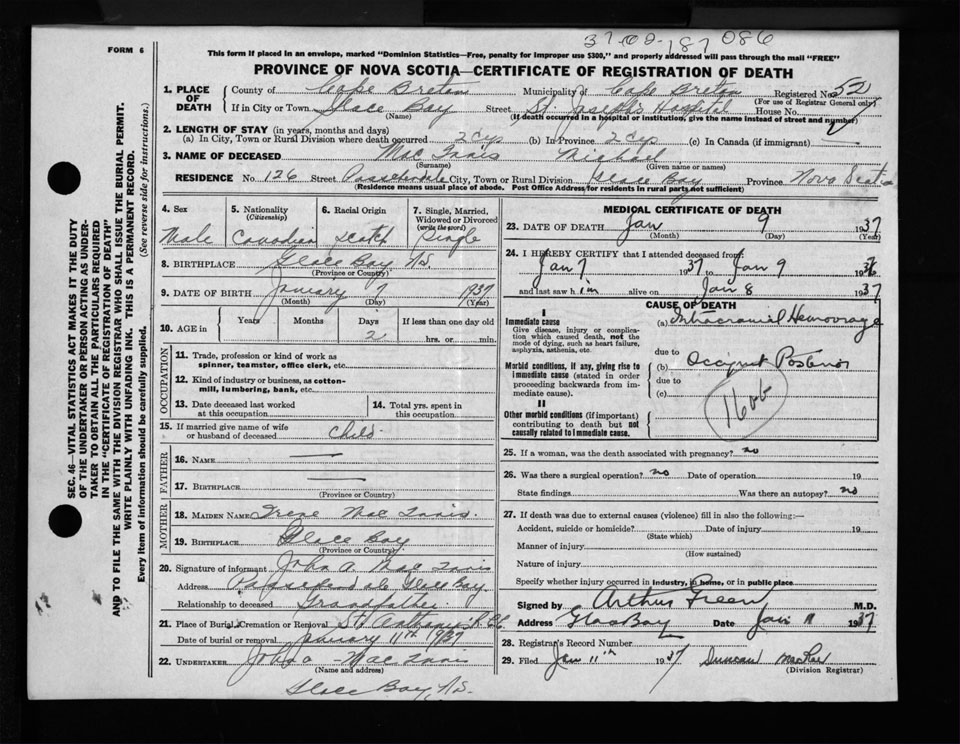 37-02-187 086
FORM 6
This form if placed in an envelope, marked "Dominion Statistics—Free, penalty for improper use $300," and properly addressed will pass through the mail "FREE"
PROVINCE OF NOVA SCOTIA—CERTIFICATE OF REGISTRATION OF DEATH
1. PLACE OF DEATH
County of Cape Breton Municipality of Cape Breton Registered No. 52
(For use of Registrar General only)
If in City or Town Glace Bay Street St. Joseph's Hospital House No.
(Name) (If death occurred in a hospital or institution, give the name instead of street and number)
2. LENGTH OF STAY (in years, months and days)
(a) In City, Town or Rural Division where death occurred 2 dys (b) In Province 2 dys (c) In Canada (if immigrant) —
3. NAME OF DECEASED Mac Innis Michael
(Surname) (Given name or names)
RESIDENCE No. 126 Street Passchendale City, Town or Rural Division Glace Bay Province Nova Scotia
(Residence means usual place of abode. Post Office Address for residents in rural parts not sufficient)
SEC. 46—VITAL STATISTICS ACT MAKES IT THE DUTY
OF THE UNDERTAKER OR PERSON ACTING AS UNDER-
TAKER TO OBTAIN ALL THE PARTICULARS REQUIRED
IN THE "CERTIFICATE OF REGISTRATION OF DEATH"
AND TO FILE THE SAME WITH THE DIVISION REGISTRAR WHO SHALL ISSUE THE BURIAL PERMIT.
WRITE PLAINLY WITH UNFADING INK. THIS IS A PERMANENT RECORD.
Every item of information should be carefully supplied. (See reverse side for instructions.)
4. Sex
Male
5. Nationality
(Citizenship)
Canadian
6. Racial Origin
Scotch
7. Single, Married,
Widowed or Divorced
(write the word)
Single
8. BIRTHPLACE Glace Bay NS
(Province or Country)
9. DATE OF BIRTH January 7 1937
(Month) (Day) (Year)
10. AGE in
Years Months Days If less than one day old
2 hrs. or min.
OCCUPATION
11. Trade, profession or kind of work as
spinner, teamster, office clerk, etc.
12. Kind of industry or business, as cotton-
mill, lumbering, bank, etc.
13. Date deceased last worked
at this occupation
14. Total yrs. spent in
this occupation
15. If married give name of wife
or husband of deceased Child
FATHER
16. NAME —
17. BIRTHPLACE —
(Province or Country)
MOTHER
18. MAIDEN NAME Irene Mac Innis.
19. BIRTHPLACE Glace Bay
(Province or Country)
20. Signature of informant John A Mac Innis
Address Passchendale Glace Bay
Relationship to deceased Grandfather
21. Place of Burial, Cremation or Removal St. Anthony's R.C.
Date of burial or removal January 11th 1937
22. UNDERTAKER John A Mac Innis
(Name and address)
Glace Bay, N.S.
MEDICAL CERTIFICATE OF DEATH
23. DATE OF DEATH Jan 9 1937
(Month) (Day) (Year)
24. I HEREBY CERTIFY that I attended deceased from:
Jan 7 1937 to Jan 9 1937
and last saw h im alive on Jan 8 1937
CAUSE OF DEATH
I
Immediate cause
Give disease, injury or complica-
tion which caused death, not the
mode of dying, such as heart failure,
asphyxia, asthenia, etc.
(a) Intracranial Hemorrage
due to
Morbid conditions, if any, giving rise to
immediate cause (stated in order
proceeding backwards from im-
mediate cause).
(b) Occiput Posterior
due to
(c)
160b
II
Other morbid conditions (if important)
contributing to death but not
causally related to immediate cause.
25. If a woman, was the death associated with pregnancy? no
26. Was there a surgical operation? no Date of operation 19
State findings Was there an autopsy? no
27. If death was due to external causes (violence) fill in also the following:—
Accident, suicide or homicide? Date of injury 19
(State which)
Manner of injury
(How sustained)
Nature of injury
Specify whether injury occurred in industry, in home, or in public place
Signed by Arthur Green M.D.
Address Glace Bay Date Jan 11 1937
28. Registrar's Record Number
29. Filed Jan 11th 1937 Duncan MacRae
(Division Registrar)